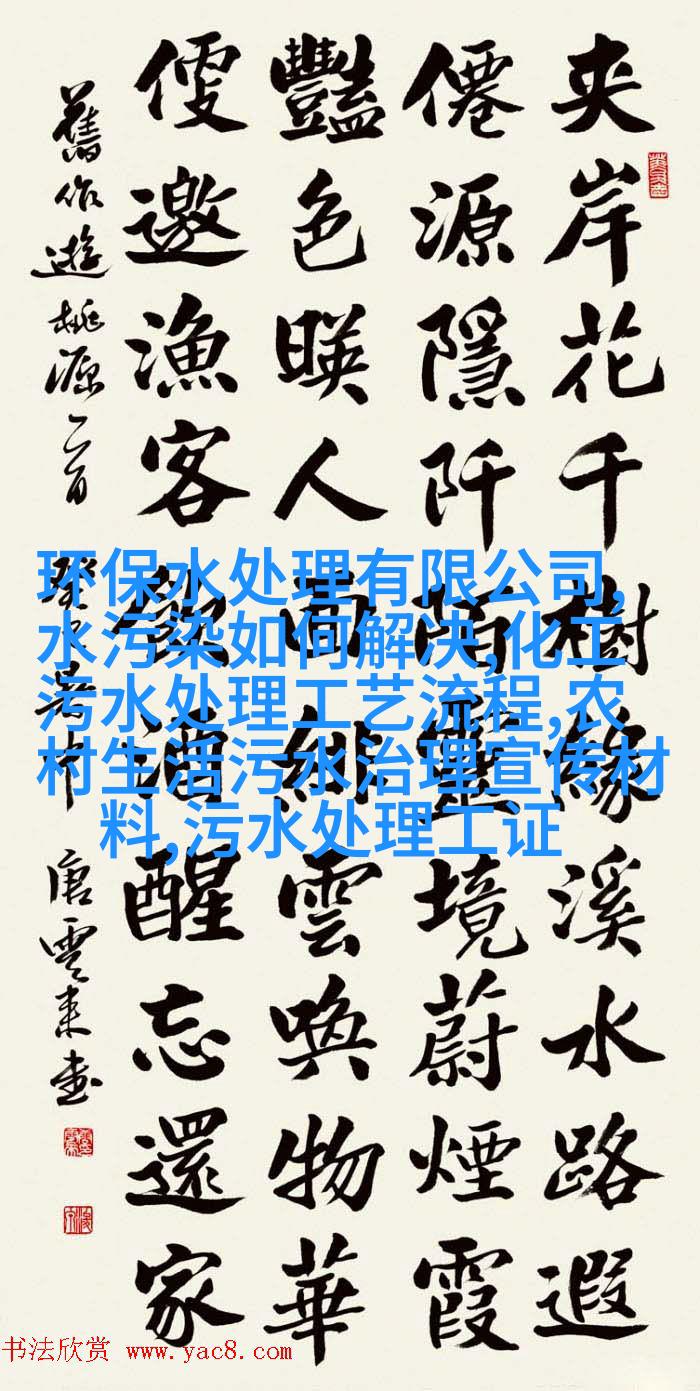 夾岸花千樹緣溪水路遐
僊源隱阡陌靈境蔚煙霞
豔色暎人面緋雲喚物華
便邀漁客醒忘還家
舊作遊桃源二首 癸巳暑中 唐雲来書
环保水处理有限公司,
水污染如何解决,化工
污水处理工艺流程,农
村生活污水治理宣传材
料,污水处理工证
书法欣赏 www.yac8.com